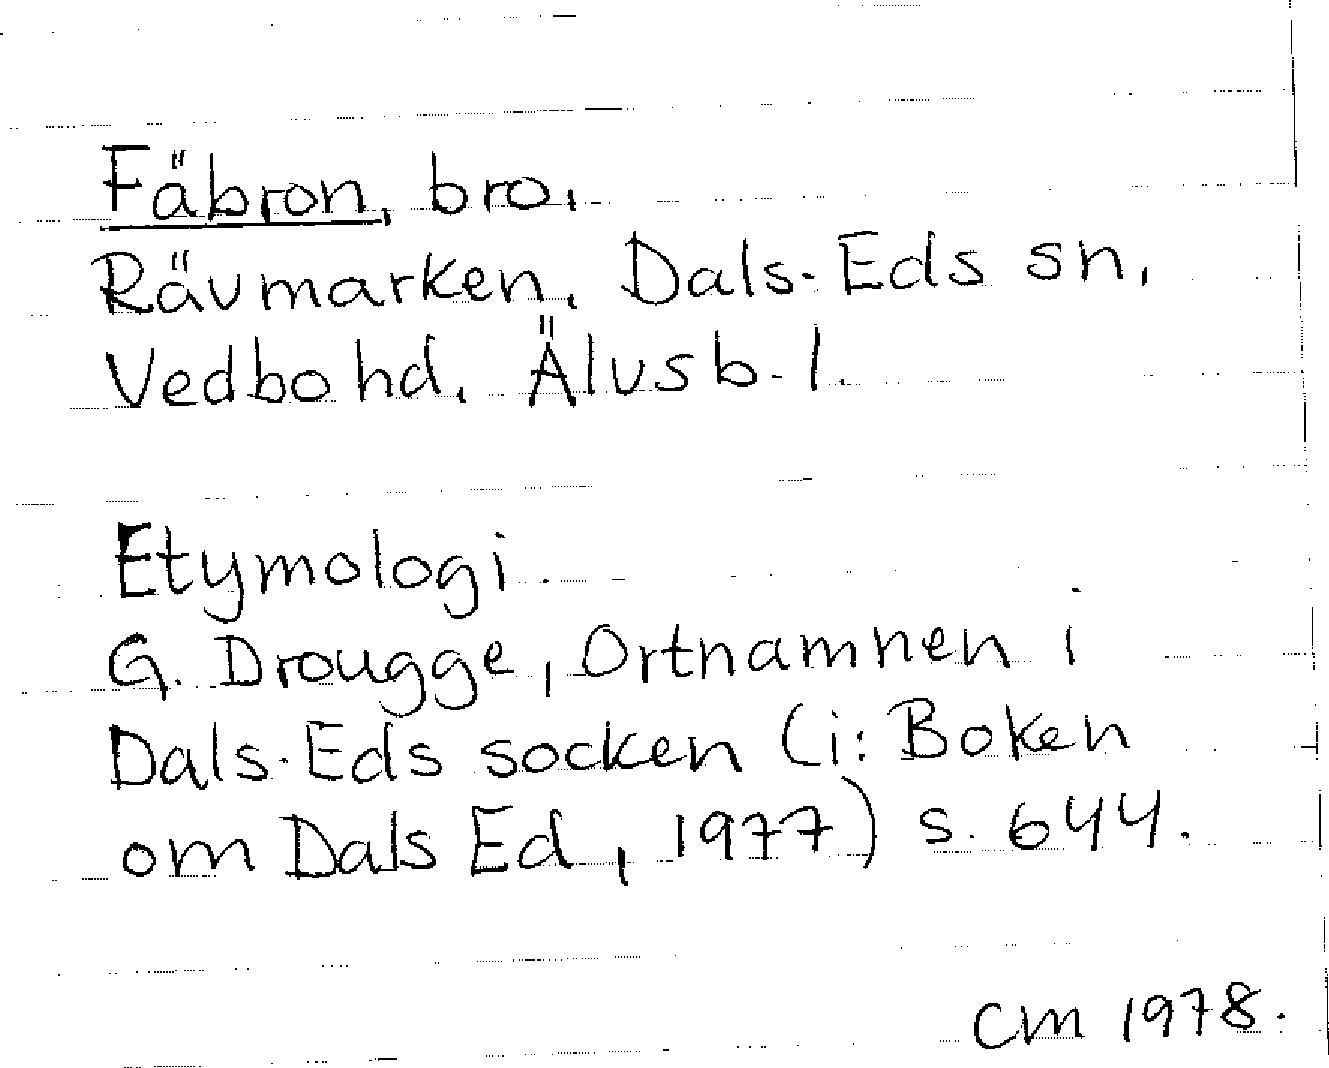 Fäbron, bro,
Rävmarken, Dals-Eds sn,
Vedbo hd, Älvsb. l.
Etymologi
G. Drougge, Ortnamnen i
Dals-Eds socken (i: Boken
om Dals Ed, 1977) s. 644.
CM 1978.